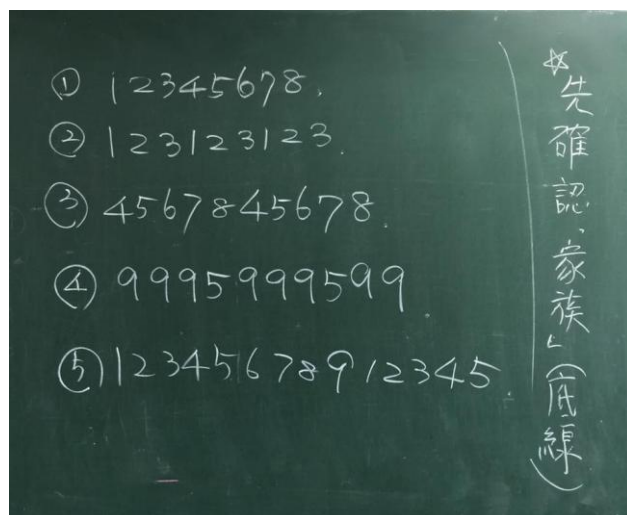 ① 12345678.
② 123123123.
③ 4567845678.
④ 9995999599.
⑤ 12345678912345.
☆先確認「家族」(底線)